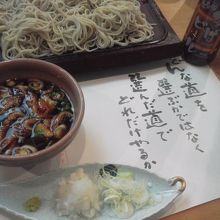 どんな道を
選ぶかではなく
選んだ道で
どれだけやるか